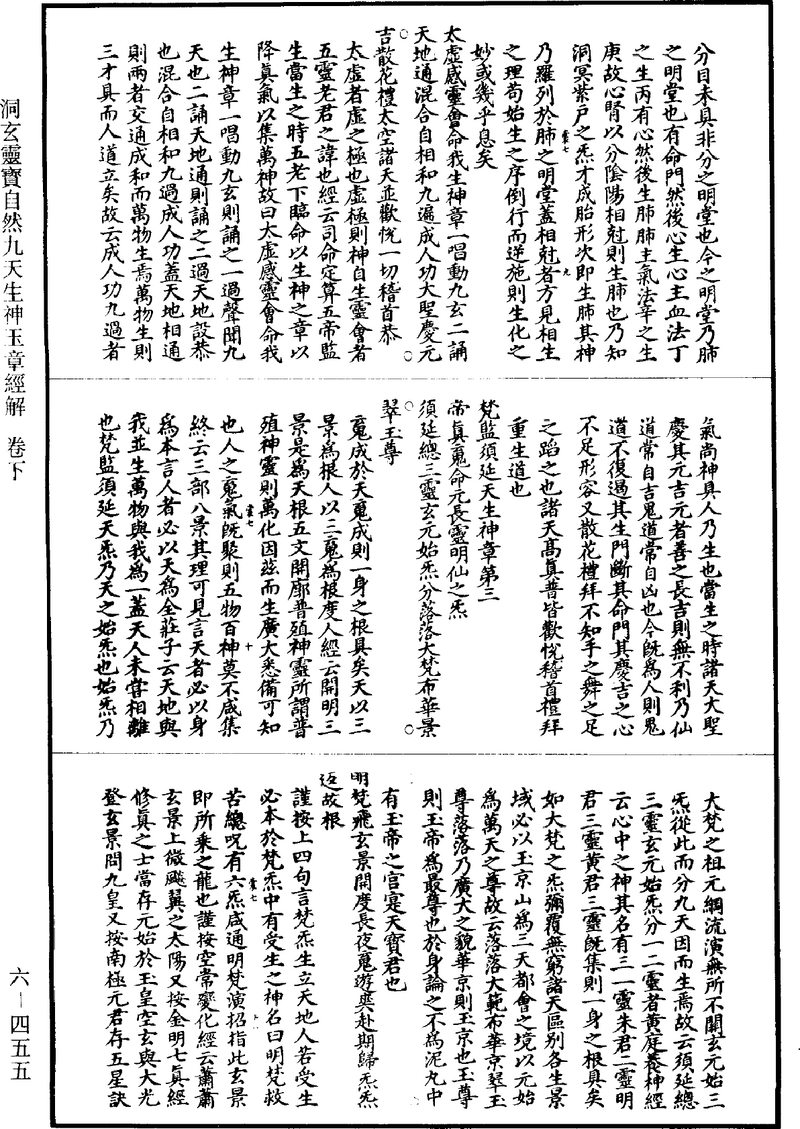 分目未具非分之明堂也今之明堂乃肺
之明堂也有命門然後心生心主血法丁
之生丙有心然後生肺肺主氣法辛之生
庚故心腎以分陰陽相尅則生肺也乃知
洞冥紫戶之炁才成胎形次即生肺其神
乃羅列於肺之明堂蓋相尅者方見相生
之理苟始生之序倒行而逆施則生化之
妙或幾乎息矣
太虛感靈會命我生神章一唱動九玄二誦
天地通混合自相和九遍成人功大聖慶元
吉散花禮太空諸天並歡悅一切稽首恭
太虛者虛之極也虛極則神自生靈會者
五靈老君之諱也經云司命定算五帝監
生當生之時五老下臨命以生神之章以
降真氣以集萬神故曰太虛感靈會命我
生神章一唱動九玄則誦之一過聲聞九
天也二誦天地通則誦之二過天地設恭
也混合自相和九過成人功蓋天地相通
則兩者交通成和而萬物生焉萬物生則
三才具而人道立矣故云成人功九過者
氣尚神具人乃生也當生之時諸天大聖
慶其元吉元者善之長吉則無不利乃仙
道常自吉鬼道常自凶也今旣為人則鬼
道不復遏其生門斷其命門其慶吉之心
不足形容又散花禮拜不知手之舞之足
之蹈之也諸天高真普皆歡悅稽首禮拜
重生道也
梵監須延天生神章第三
帝真䰟命元長靈明仙之炁
須延總三靈玄元始炁分落落大梵布華景
翠玉尊
䰟成於天䰟成則一身之根具矣天以三
景爲根人以三䰟爲根度人經云開明三
景是爲天根五文開廓普殖神靈所謂普
殖神靈則萬化因茲而生廣大悉備可知
也人之䰟氣旣聚則五物百神莫不咸集
終云三部八景其理可見言天者必以身
爲本言人者必以天爲全莊子云天地與
我並生萬物與我爲一蓋天人未嘗相離
也梵監須延天炁乃天之始炁也始炁乃
大梵之祖元綱流演無所不關玄元始三
炁從此而分九天因而生焉故云須延總
三靈玄元始炁分一二靈者黃庭養神經
云心中之神其名有三一靈朱君二靈明
君三靈黃君三靈旣集則一身之根具矣
如大梵之炁彌覆無窮諸天區別各生景
域必以玉京山爲三天都會之境以元始
爲萬天之尊故云落落大範布華京翠玉
尊落落乃廣大之貌華京則玉京也玉尊
則玉帝爲最尊也於身論之不爲泥丸中
有玉帝之宮寔天寶君也
明梵飛玄景開度長夜䰟遊爽赴期歸炁炁
返故根
謹按上四句言梵炁生立天地人若受生
必本於梵炁中有受生之神名曰明梵救
苦總呪有六炁咸通明梵演招指此玄景
即所乘之龍也謹按空常變化經云蕭蕭
玄景上微飈翼之太陽又按金明七真經
修真之士當存元始於玉皇空玄與大光
登玄景問九皇又按南極元君存五星訣
洞玄靈寶自然九天生神玉章經解 卷下
六－四五五